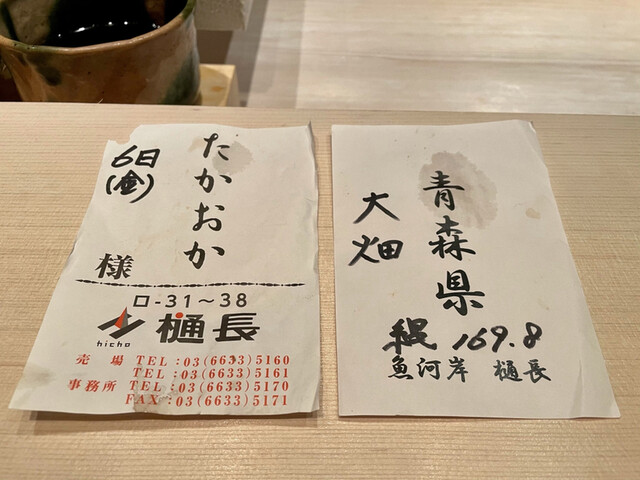 たかおか
6日
(金)
様
ロ-31～38
hicho
樋長
売場 TEL:03(6633)5160
TEL:03(6633)5161
事務所 TEL:03(6633)5170
FAX:03(6633)5171
青森県
大畑
縄 169.8
魚河岸 樋長